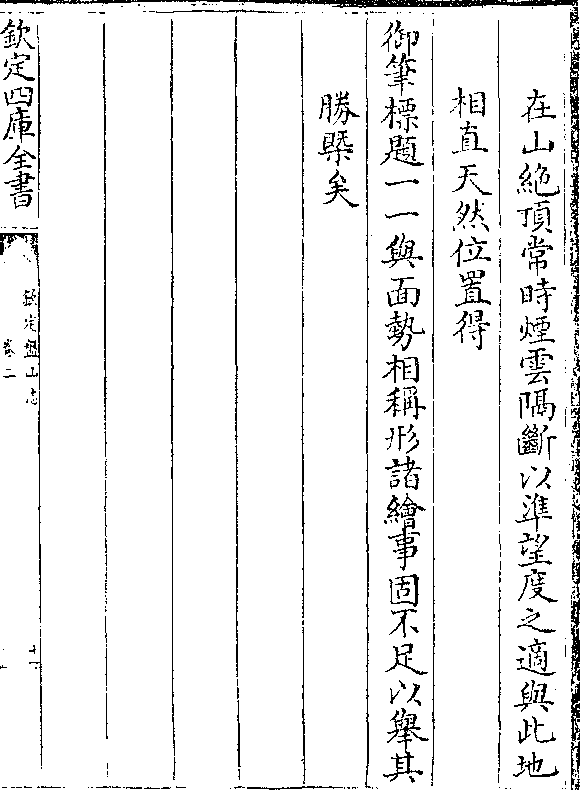 在山絶頂常時煙雲隔斷以準望度之適與此地
相直天然位置得
御筆標題一一與面勢相稱形諸繪事固不足以舉其
勝槩矣
欽定四庫全書
欽定盤山志
卷二